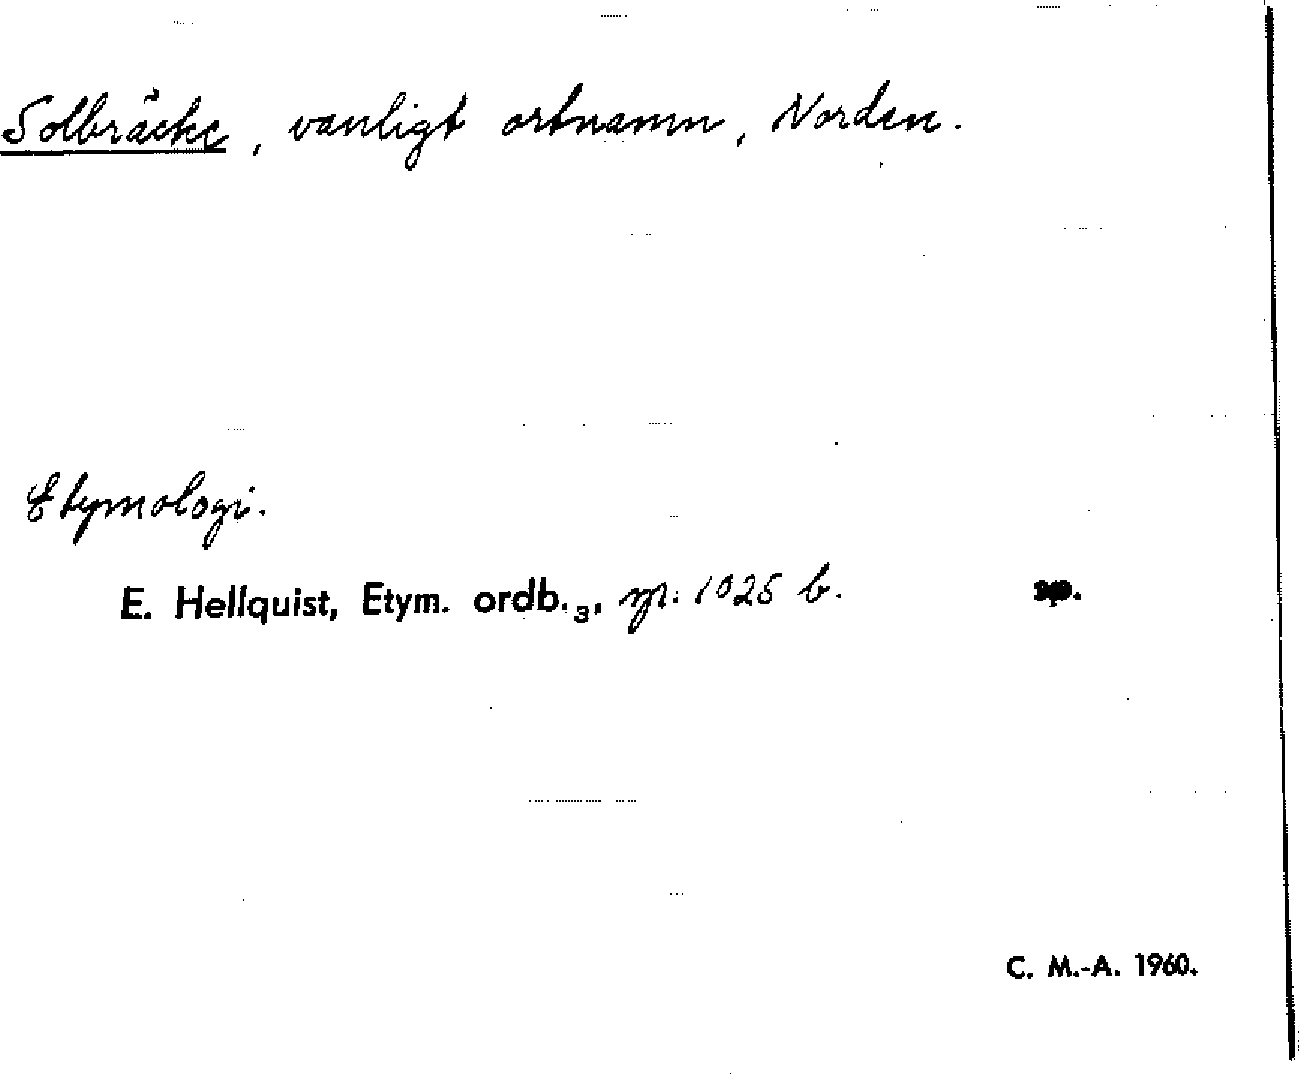 Solbräcke, vanligt ortnamn, Norden.
Etymologi.
E. Hellquist, Etym. ordb.₃, sp. 1025 b. sp.
C. M.-A. 1960.